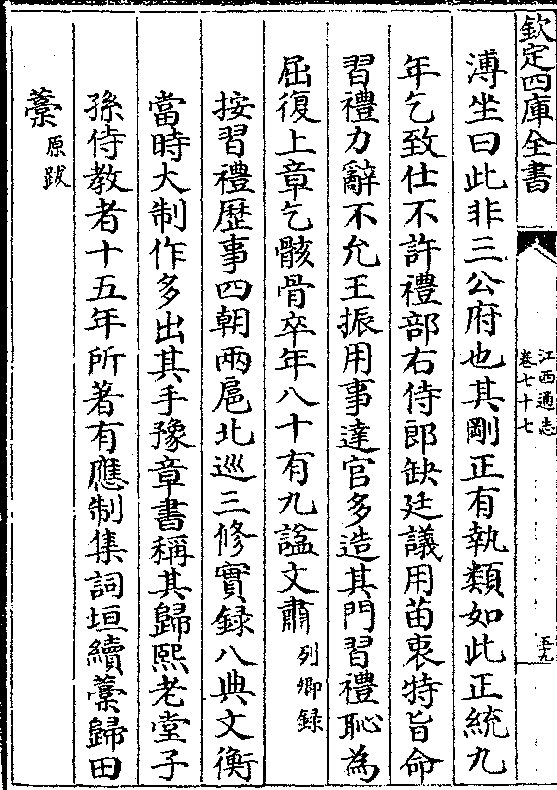 欽定四庫全書
江西通志
卷七十七
五十九
溥坐曰此非三公府也其剛正有執類如此正統九
年乞致仕不許禮部右侍郎缺廷議用苗衷特旨命
習禮力辭不允王振用事達官多造其門習禮恥為
屈復上章乞骸骨卒年八十有九諡文肅列卿錄
按習禮歴事四朝兩扈北巡三修實録八典文衡
當時大制作多出其手豫章書稱其歸熙老堂子
孫侍教者十五年所著有應制集詞垣續藁歸田
藁原跋